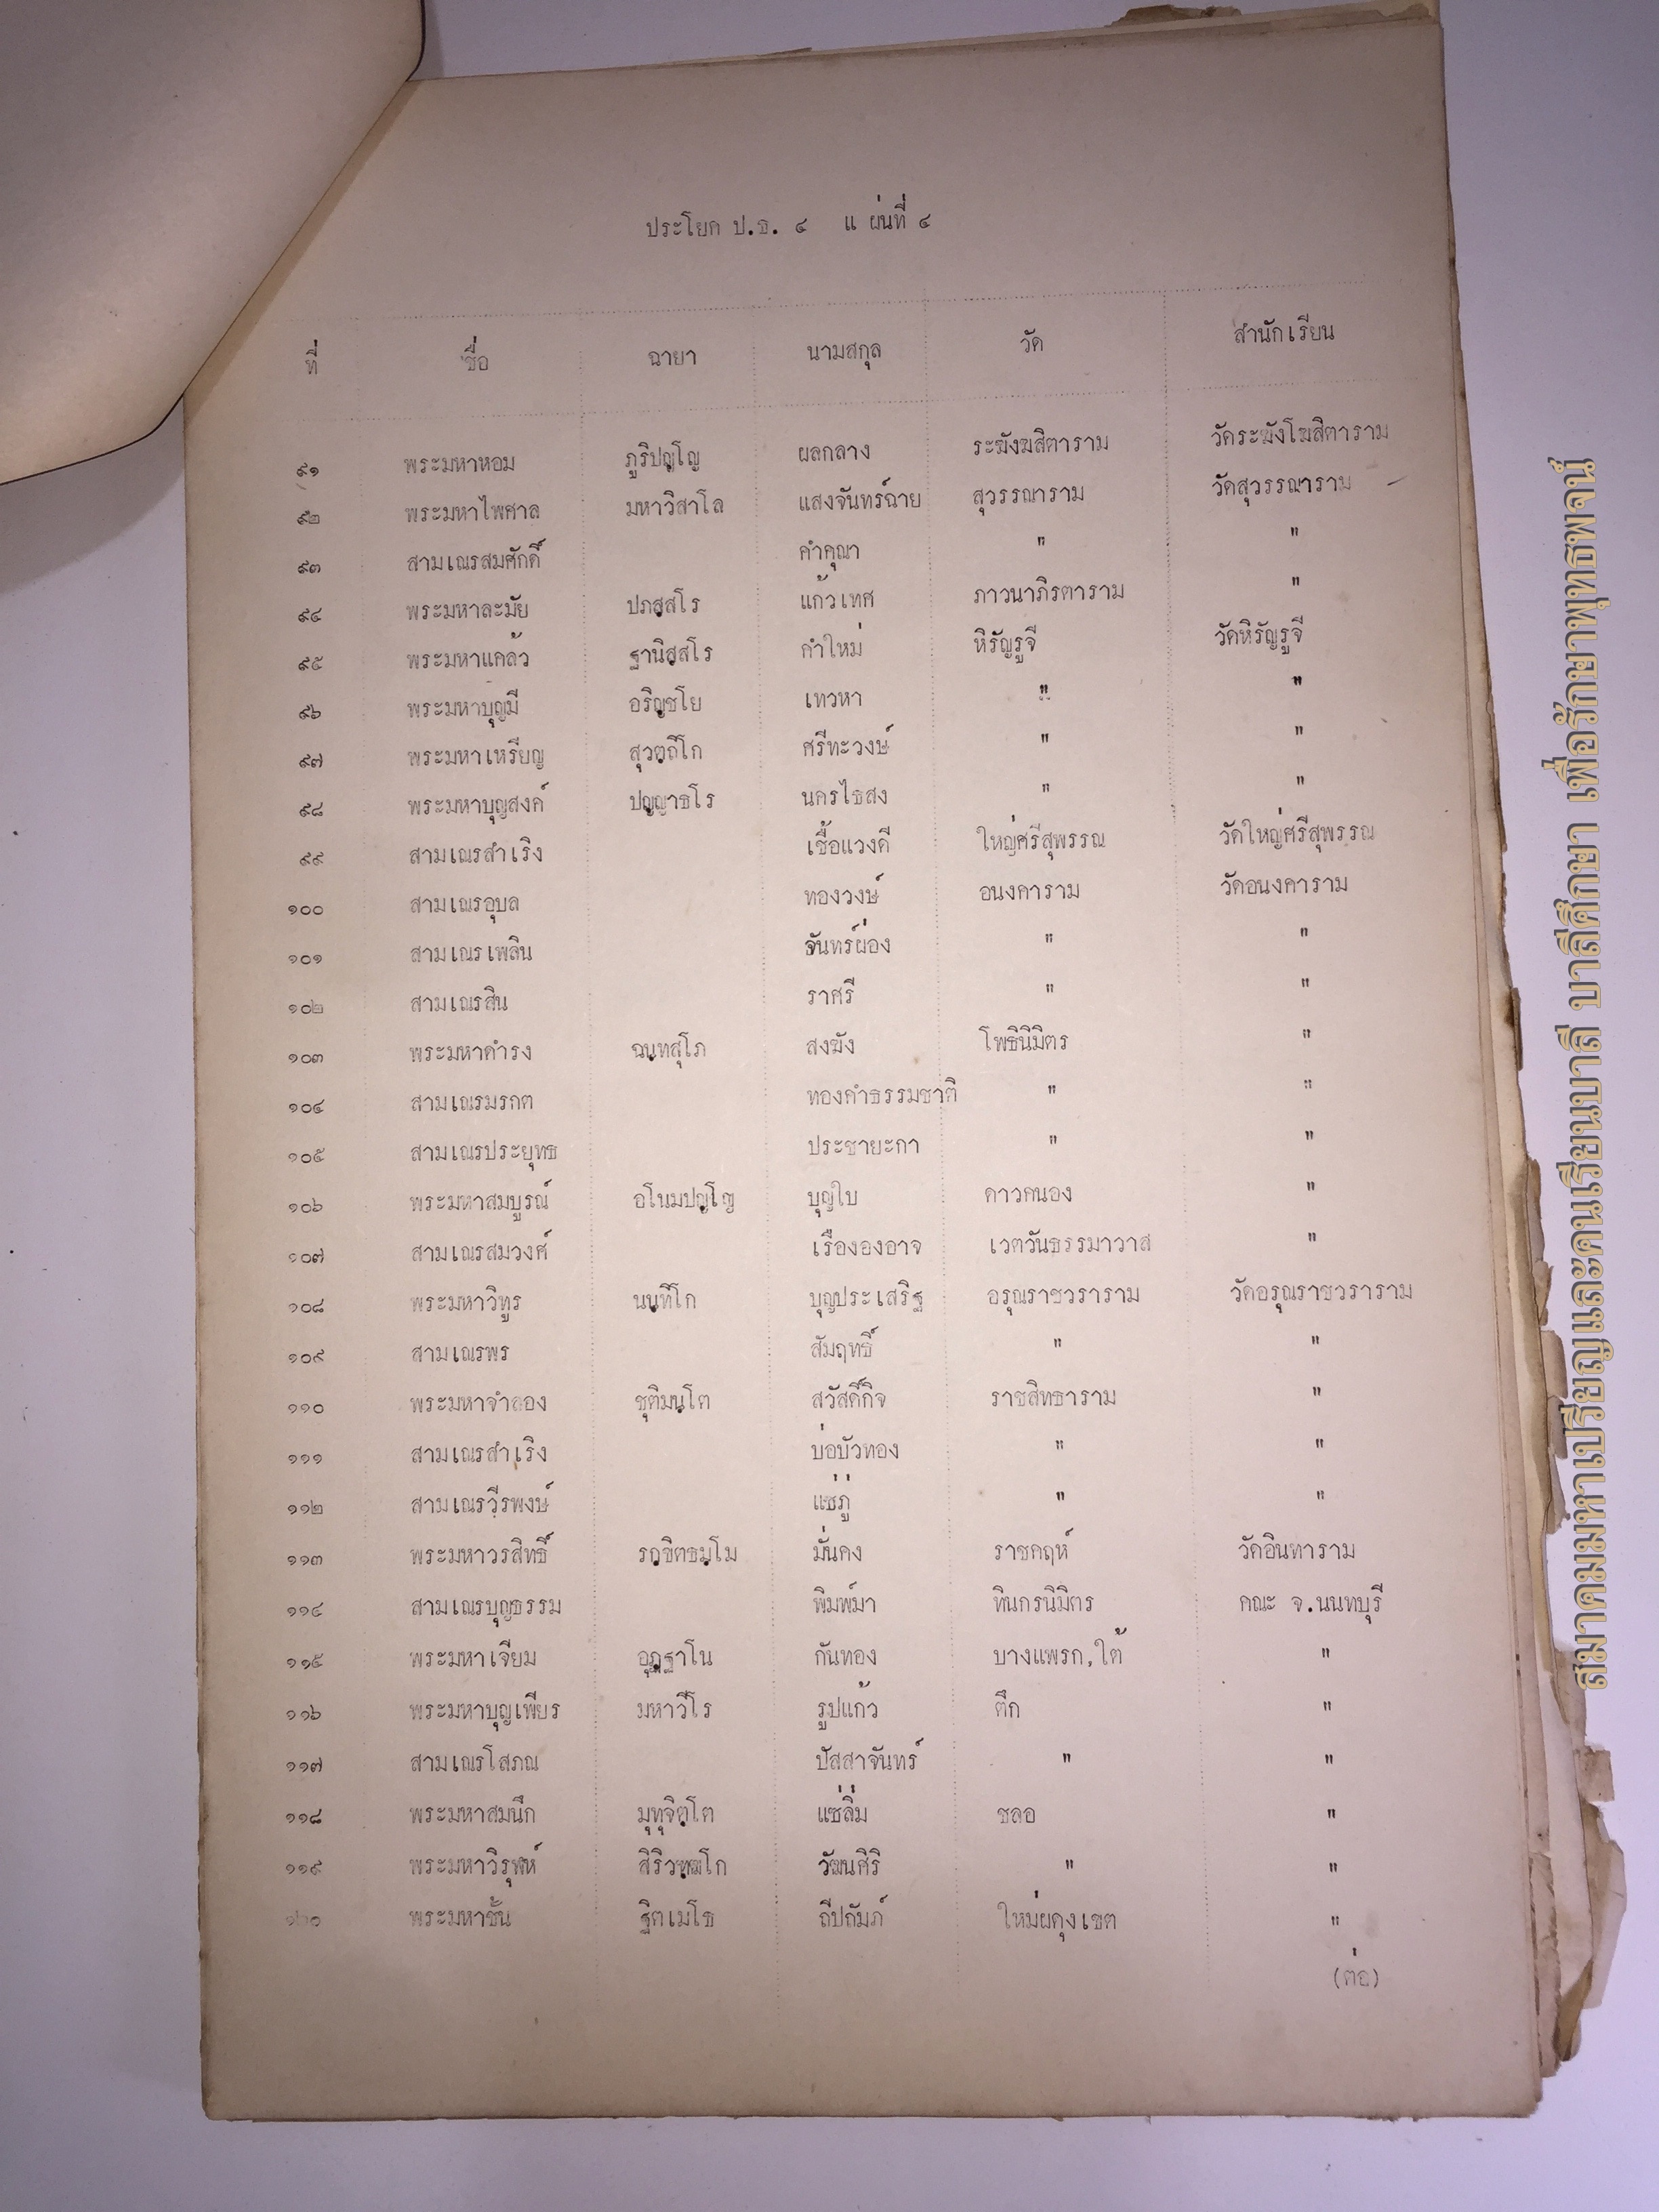 ประโยค ป.ธ. ๔ แ ผ่นที่ ๔
ที่ ชื่อ ฉายา นามสกุล วัด สำนักเรียน
๙๑ พระมหาหอม ภูริปญฺโญ ผลกลาง ระฆังฆสิตาราม วัดระฆังโฆสิตาราม
๙๒ พระมหาไพศาล มหาวิสาโล แสงจันทร์ฉาย สุวรรณาราม วัดสุวรรณาราม
๙๓ สามเณรสมศักดิ์ คำคุณา " "
๙๔ พระมหาละมัย ปภสฺสโร แก้วเทศ ภาวนาภิรตาราม "
๙๕ พระมหาแคล้ว ฐานิสฺสโร คำใหม่ หิรัญรูจี วัดหิรัญรูจี
๙๖ พระมหาบุญมี อริญฺชโย เทวหา " "
๙๗ พระมหาเหรียญ สุวตฺถิโก ศรีทะวงษ์ " "
๙๘ พระมหาบุญสงค์ ปญฺญาธโร นครไธสง " "
๙๙ สามเณรสำเริง เชื้อแวงดี ใหญ่ศรีสุพรรณ วัดใหญ่ศรีสุพรรณ
๑๐๐ สามเณรอุบล ทองวงษ์ อนงคาราม วัดอนงคาราม
๑๐๑ สามเณรเพลิน จันทร์ผ่อง " "
๑๐๒ สามเณรสิน ราศรี " "
๑๐๓ พระมหาดำรง ฉนฺทสุโภ สงฆัง โพธินิมิตร "
๑๐๔ สามเณรมรกต ทองคำธรรมชาติ " "
๑๐๕ สามเณรประยุทธ ประชายะกา " "
๑๐๖ พระมหาสมบูรณ์ อโนมปญฺโญ บุญใบ ดาวคนอง "
๑๐๗ สามเณรสมวงศ์ เรืององอาจ เวตวันธรรมาวาส "
๑๐๘ พระมหาวิทูร นนฺทิโก บุญประเสริฐ อรุณราชวราราม วัดอรุณราชวราราม
๑๐๙ สามเณรพร สัมฤทธิ์ " "
๑๑๐ พระมหาจำลอง ชุติมนฺโต สวัสดิ์กิจ ราชสิทธาราม "
๑๑๑ สามเณรสำเริง บ่อบัวทอง " "
๑๑๒ สามเณรวีรพงษ์ แซ่ภู่ " "
๑๑๓ พระมหาวรสิทธิ์ รกฺขิตธมฺโม มั่นคง ราชคฤห์ วัดอินทาราม
๑๑๔ สามเณรบุญธรรม พิมพ์มา ทินกรนิมิตร คณะ จ.นนทบุรี
๑๑๕ พระมหาเจียม อุฏฺฐาโน กันทอง บางแพรก,ใต้ "
๑๑๖ พระมหาบุญเพียร มหาวีโร รูปแก้ว ตึก "
๑๑๗ สามเณรโสภณ ปัสสาจันทร์ " "
๑๑๘ พระมหาสมนึก มุทุจิตฺโต แซ่ลิ่ม ชลอ "
๑๑๙ พระมหาวิรุฬห์ สิริวฑฺฒโก วัฒนศิริ " "
๑๒๐ พระมหาชั้น ฐิตเมโธ ถีปถัมภ์ ใหม่ผดุงเขต "
(ต่อ)
สมาคมมหาเปรียญและคนเรียนบาลี บาลีศึกษา เพื่อรักษาพุทธพจน์